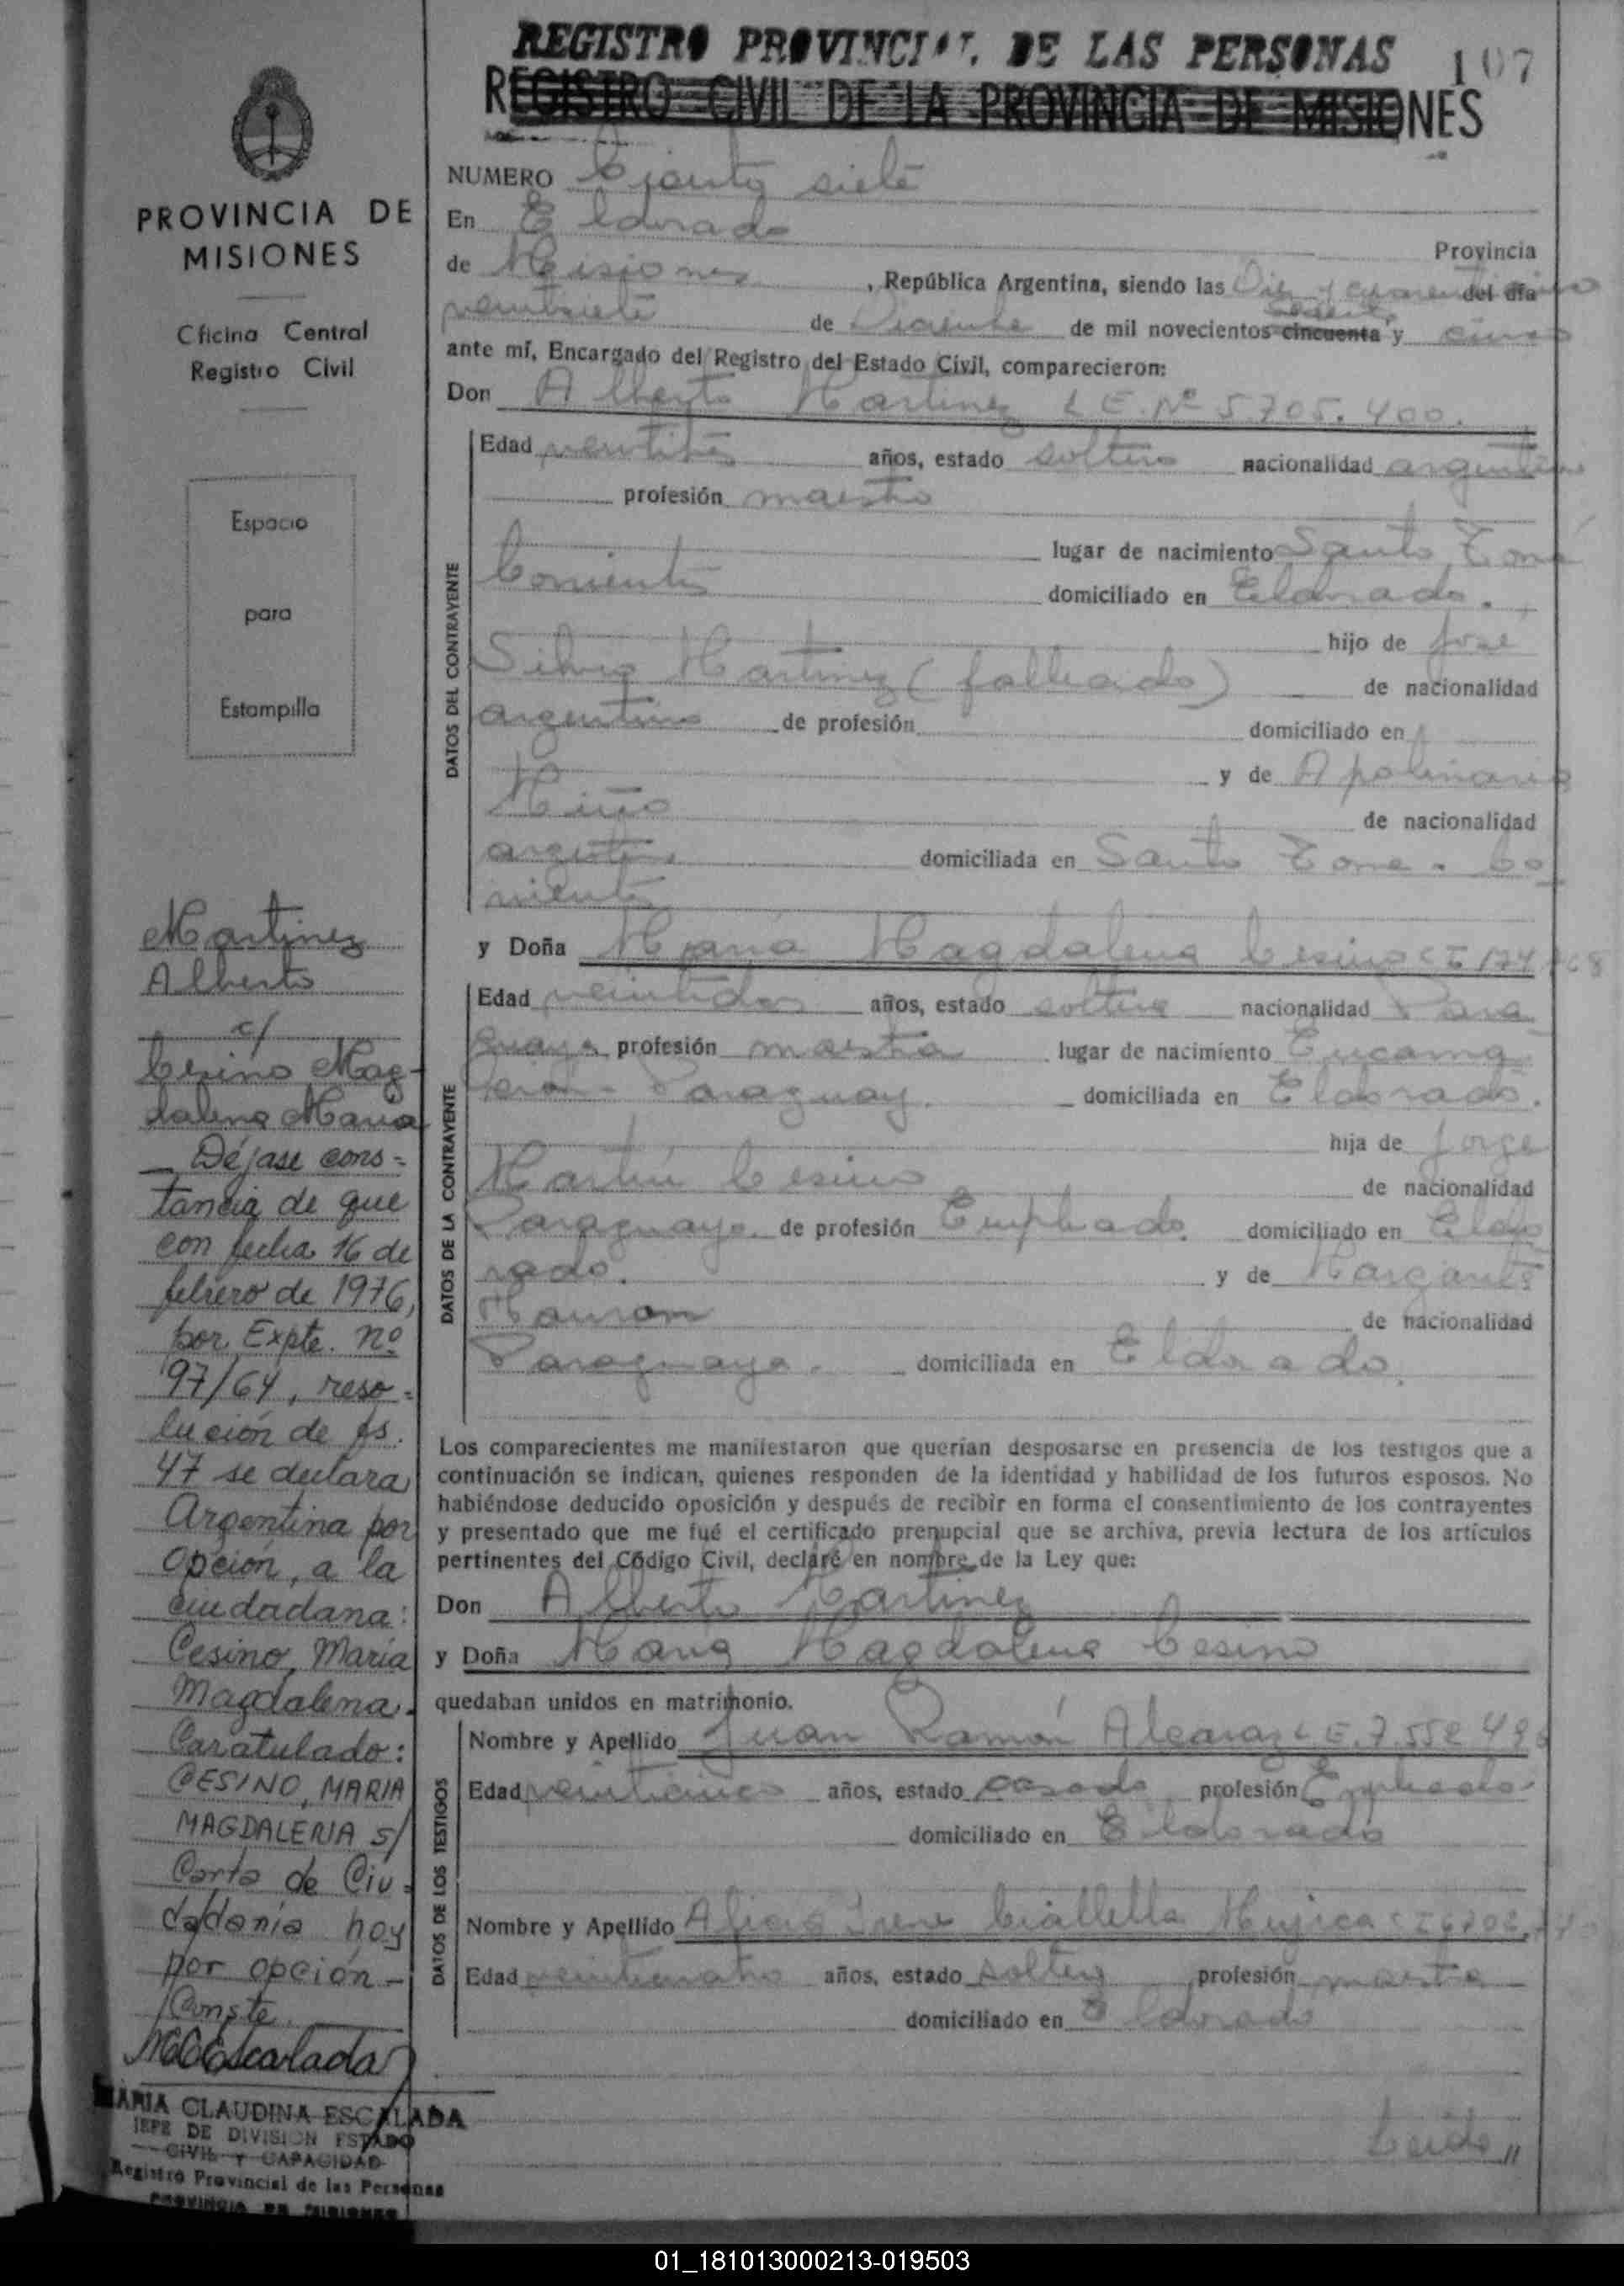 REGISTRO PROVINCIAL DE LAS PERSONAS 107
REGISTRO CIVIL DE LA PROVINCIA DE MISIONES
PROVINCIA DE
MISIONES
Oficina Central
Registro Civil
Espacio
para
Estampilla
Martinez
Alberto
c/
Cesino Mag-
dalena Maria
Déjase cons-
tancia de que
con fecha 16 de
febrero de 1976,
por Expte. nº
97/64, reso-
lución de fs.
47 se declara
Argentina por
Opción, a la
ciudadana:
Cesino, María
Magdalena.
Caratulado:
CESINO, MARIA
MAGDALENA s/
Carta de Ciu-
dadanía hoy
por opción-
Conste.
MCEscalada
MARIA CLAUDINA ESCALADA
JEFE DE DIVISION ESTADO
CIVIL Y CAPACIDAD
Registro Provincial de las Personas
PROVINCIA DE MISIONES
NUMERO Ciento siete
En Eldorado
Provincia
de Misiones, República Argentina, siendo las Diez y cuarenticinco del día
veintisiete de Diciembre de mil novecientos cincuenta sesenta y cinco
ante mí, Encargado del Registro del Estado Civil, comparecieron:
Don Alberto Martinez L.E. Nº 5.705.400.
DATOS DEL CONTRAYENTE
Edad años, estado soltero nacionalidad argentino
profesión maestro
lugar de nacimiento Santo Tomé
Corrientes domiciliado en Eldorado.
hijo de José
Silvio Martinez (fallecido) de nacionalidad
argentino de profesión domiciliado en
y de Apolinaria
Miño de nacionalidad
argentina domiciliada en Santo Tome. Co-
rrientes
y Doña María Magdalena Cesino C I 174
DATOS DE LA CONTRAYENTE
Edad veintidos años, estado soltera nacionalidad Para-
guaya profesión maestra lugar de nacimiento Encarna-
ción - Paraguay. domiciliada en Eldorado.
hija de Jorge
Martín Cesino de nacionalidad
Paraguayo. de profesión Empleado. domiciliado en Eldo-
rado. y de Margarita
de nacionalidad
Paraguaya. domiciliada en Eldorado.
Los comparecientes me manifestaron que querían desposarse en presencia de los testigos que a
continuación se indican, quienes responden de la identidad y habilidad de los futuros esposos. No
habiéndose deducido oposición y después de recibir en forma el consentimiento de los contrayentes
y presentado que me fué el certificado prenupcial que se archiva, previa lectura de los artículos
pertinentes del Código Civil, declaré en nombre de la Ley que:
Don Alberto Martinez
y Doña María Magdalena Cesino
quedaban unidos en matrimonio.
DATOS DE LOS TESTIGOS
Nombre y Apellido Juan Ramón Alcaraz L E. 7.552.49
Edad veinticinco años, estado casado profesión Empleado
domiciliado en Eldorado
Nombre y Apellido Alicia Irene Mujica C I 6702.
Edad veinticuatro años, estado soltera profesión maestra
domiciliado en Eldorado
Leída //
01_181013000213-019503